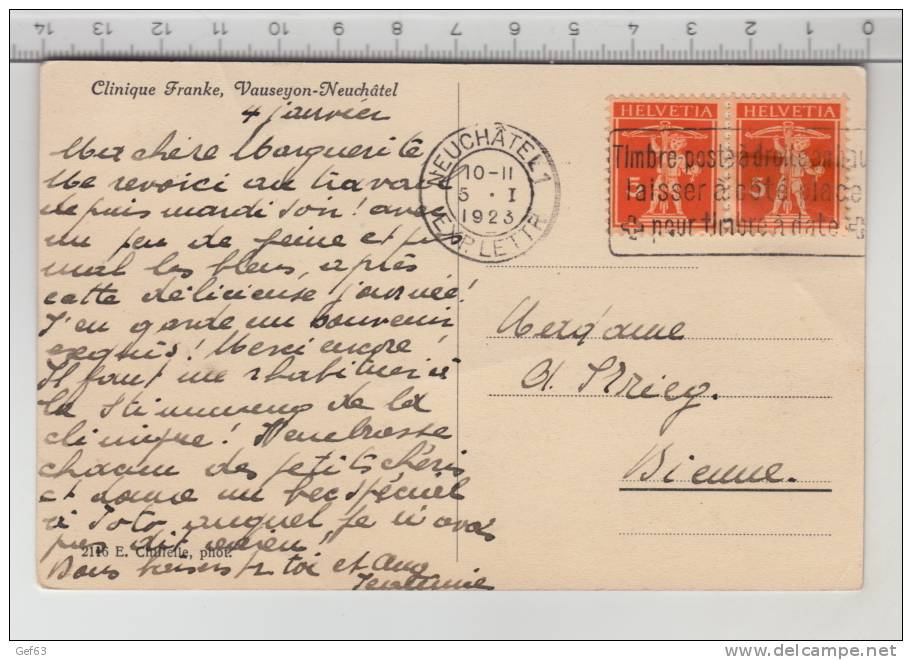 14 13 12 11 10 9 8 7 6 5 4 3 2 1 0
Clinique Franke, Vauseyon-Neuchâtel
4 janvier
Ma chère Marguerite
Me revoici au travail
depuis mardi soir! avec
un peu de peine et pas
mal les bleus, après
cette délicieuse journée!
J'en garde un souvenir
exquis! Merci encore!
Il faut me rhabituer à
la Stimmung de la
clinique! J'embrasse
chacun des petits chéris
et donne un bec spécial
à Toto auquel je n'avais
pas dit adieu
Bons baisers p toi et Aug
2116 E. Chiffelle, phot.
NEUCHÂTEL 1
10-11
5 . I
1923
EXP. LETTR.
HELVETIA HELVETIA
5 5
Timbre-poste à droite en hau
laisser à côté place
pour timbre à date
Madame
A. Krieg.
Bienne.
Gef63
www.delcampe.net